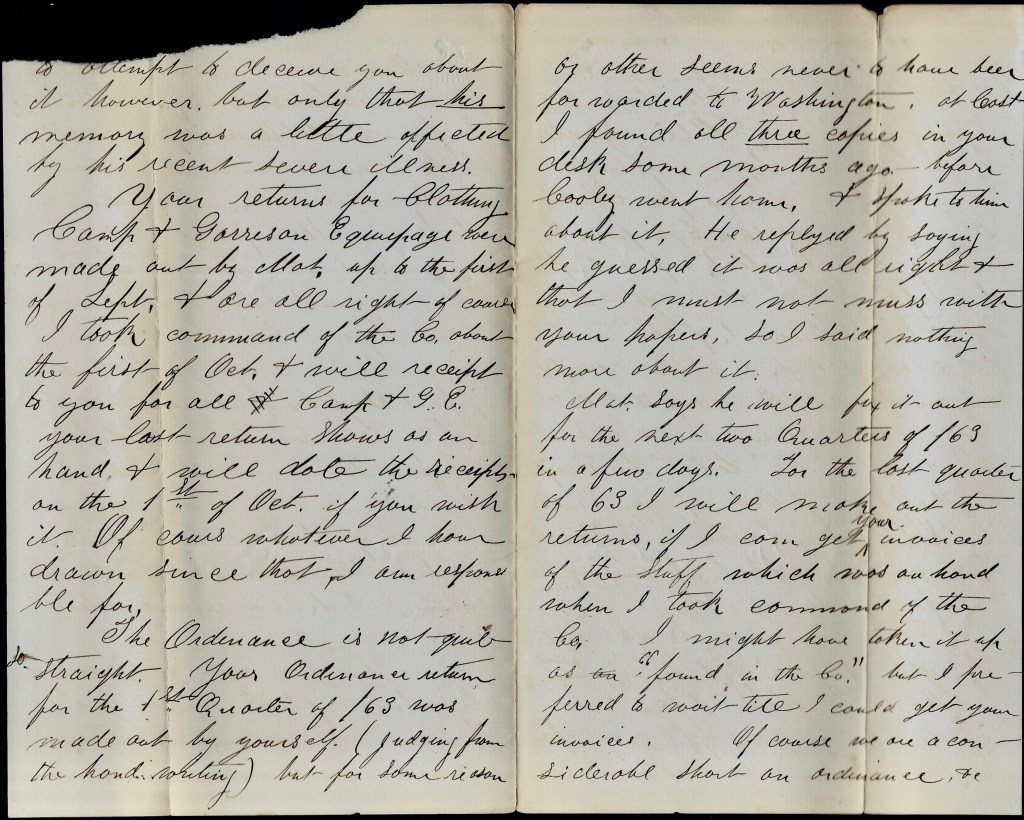 to attempt to deceive you about
it however. but only that his
memory was a little affected
by his recent severe illness.
Your returns for Clothing
Camp & Garrison Equipage were
made out by Mat. up to the first
of Sept, & are all right of course
I took command of the Co. about
the first of Oct. & will receipt
to you for all Camp & G. E.
your last return shows as on
hand, & will date the receipts
on the 1st of Oct. if you wish
it. Of cours whatever I have
drawn since that, I am responsi
ble for,
The Ordinance is not quite
so straight. Your Ordinance return
for the 1st Quarter of /63 was
made out by yourself. (Judging from
the hand-writing) but for some reason
or other seems never to have been
forwarded to Washington, at least
I found all three copies in your
desk some months ago - before
Cooley went home, & spoke to him
about it, He replyed by saying
he guessed it was all right &
that I must not muss with
your papers, so I said nothing
more about it.
Mat. says he will fix it out
for the next two Quarters of /63
in a few days. For the last quarter
of 63 I will make out the
returns, if I can get your invoices
of the stuff which was on hand
when I took command of the
Co. I might have taken it up
as an "found in the Co." but I pre-
ferred to wait till I could get your
invoices. Of course we are a con-
siderable short on ordinance, &c